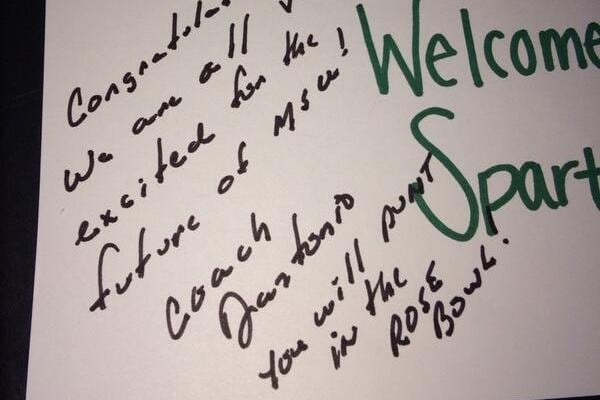 Congratula
We are all
excited for the
future of MSU!
Coach
Dantonio
You will PUNT
in the
ROSE
BOWL!
Welcome
Spart